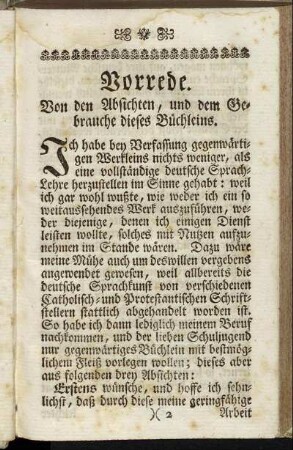 Vorrede.
Von den Absichten, und dem Ge-
brauche dieses Büchleins.
Ich habe bey Verfassung gegenwärti-
gen Werkleins nichts weniger, als
eine vollständige deutsche Sprach-
Lehre herzustellen im Sinne gehabt: weil
ich gar wohl wußte, wie weder ich ein so
weitaussehendes Werk auszuführen, we-
der diejenige, denen ich einigen Dienst
leisten wollte, solches mit Nutzen aufzu-
nehmen im Stande wären. Dazu wäre
meine Mühe auch um deswillen vergebens
angewendet gewesen, weil allbereits die
deutsche Sprachkunst von verschiedenen
Catholisch- und Protestantischen Schrift-
stellern stattlich abgehandelt worden ist.
So habe ich dann lediglich meinem Beruf
nachkommen, und der lieben Schuljugend
nur gegenwärtiges Büchlein mit bestmög-
lichem Fleiß vorlegen wollen; dieses aber
aus folgenden drey Absichten:
Erstens wünsche, und hoffe ich sehn-
lichst, daß durch diese meine geringfähige
)( 2 Arbeit